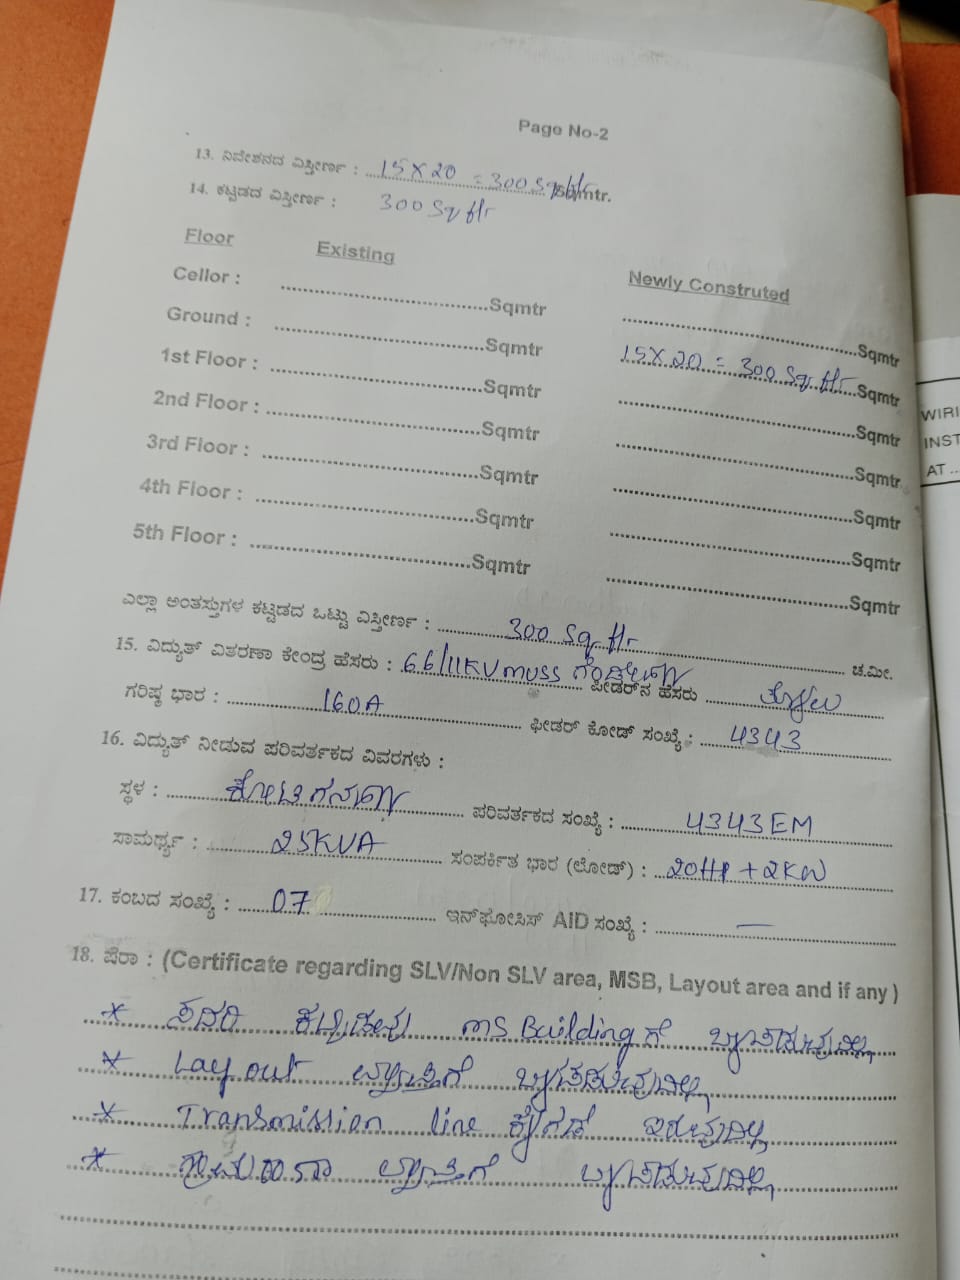 Page No-2
13. ನಿವೇಶನದ ವಿಸ್ತೀರ್ಣ : 15 X 20 = 300 Sq ftr Sqmtr.
14. ಕಟ್ಟಡದ ವಿಸ್ತೀರ್ಣ : 300 Sq ftr
Floor Existing Newly Construted
Cellor : Sqmtr Sqmtr
Ground : Sqmtr 15 X 20 = 300 Sq. ftr Sqmtr
1st Floor : Sqmtr Sqmtr
2nd Floor : Sqmtr Sqmtr
3rd Floor : Sqmtr Sqmtr
4th Floor : Sqmtr Sqmtr
5th Floor : Sqmtr Sqmtr
ಎಲ್ಲಾ ಅಂತಸ್ತುಗಳ ಕಟ್ಟಡದ ಒಟ್ಟು ವಿಸ್ತೀರ್ಣ : 300 Sq ftr ಚ.ಮೀ.
15. ವಿದ್ಯುತ್ ವಿತರಣಾ ಕೇಂದ್ರ ಹೆಸರು : 66/11KV MUSS ಫೀಡರ್‌ನ ಹೆಸರು
ಗರಿಷ್ಠ ಭಾರ : 160A ಫೀಡರ್ ಕೋಡ್ ಸಂಖ್ಯೆ : 4343
16. ವಿದ್ಯುತ್ ನೀಡುವ ಪರಿವರ್ತಕದ ವಿವರಗಳು :
ಸ್ಥಳ : ಪರಿವರ್ತಕದ ಸಂಖ್ಯೆ : 4343EM
ಸಾಮರ್ಥ್ಯ : 25KVA ಸಂಪರ್ಕಿತ ಭಾರ (ಲೋಡ್) : 20HP + 2KW
17. ಕಂಬದ ಸಂಖ್ಯೆ : 07 ಇನ್‌ಫೋಸಿಸ್ AID ಸಂಖ್ಯೆ : —
18. ಷೆರಾ : (Certificate regarding SLV/Non SLV area, MSB, Layout area and if any )
* ಸದರಿ ಕಟ್ಟಡವು MS Building ಗೆ
* Layout ವ್ಯಾಪ್ತಿಗೆ
* Transmission line ಕೆಳಗಡೆ ಇರುವುದಿಲ್ಲ
* ವ್ಯಾಪ್ತಿಗೆ
WIRI
INST
AT